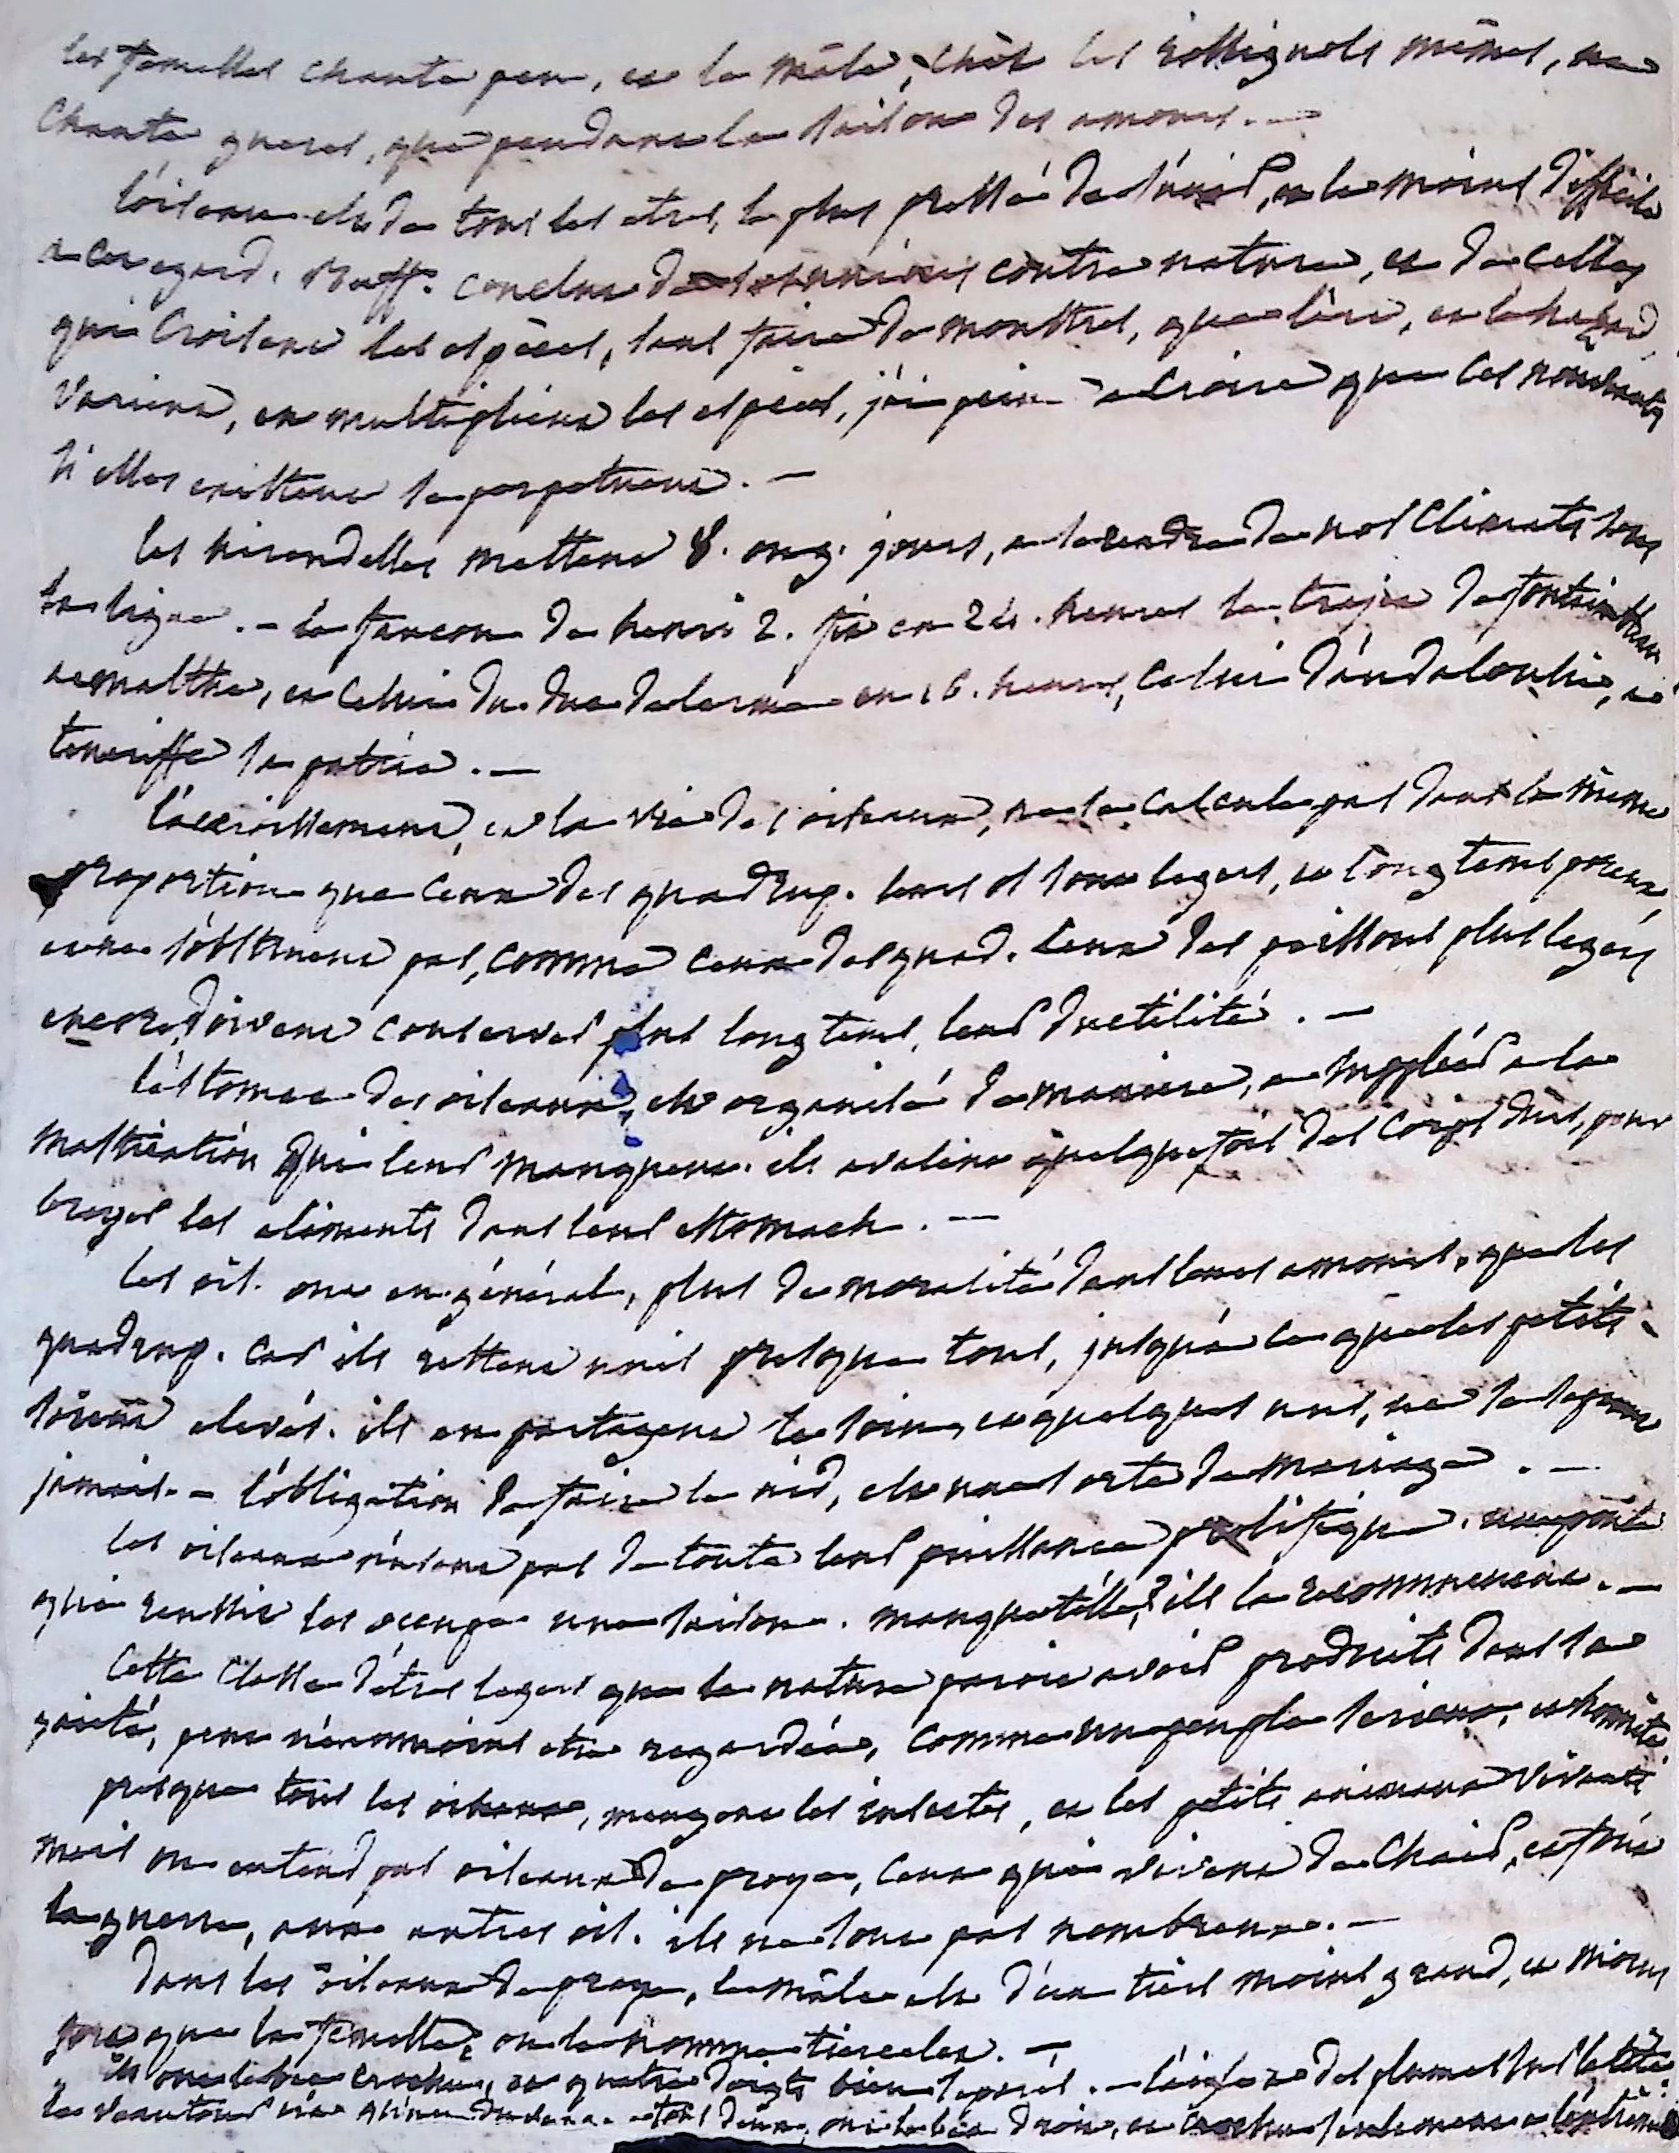 les femelles chante peu, et le mâle, chés les rossignols mêmes, ne
chante gueres, que pendant la saison des amours. —
l'oiseau est de tous les etres, le plus pressé de s'unir, et le moins difficile
a cet egard. Buff. conclut de ses unions contre nature, et de celles
qui croisent les espèces, sans faire de monstres, que l'air, et le hazard
varient, et multiplient les espèces, j'ai peine a croire que ces
si elles existent se perpetuent. —
les hirondelles mettent 8. ou 9. jours, a se rendre de nos climats sous
la ligne. — le faucon de henri 2. fit en 24. heures le trajet de fontainebleau
a malthe, et celui du duc de lerme en 16. heures, celui d'andalousie, a
teneriffe sa patrie. —
l'accroissement, et la vie des oiseaux, ne se calcule pas dans la même
proportion que ceux des quadrup. leurs os sont legers, et longtems poreux,
et ne s'obstruent pas, comme ceux des quad. ceux des poissons plus legers
encore, doivent conserver plus longtems, leur ductilité. —
l'estomac des oiseaux, est organisé de maniere, a suppléer a la
mastication qui leur manquent. ils avalent quelquefois des corps durs, pour
broyer les aliments dans leur estomach. —
les ois. ont en général, plus de moralité dans leurs amours, que les
quadrup. car ils restent unis presque tous, jusqu'a ce que les petits
soient elevés. ils en partagent le soin, et quelques uns, ne se separent
jamais. — l'obligation de faire le nid, est une sorte de mariage. —
les oiseaux n'usent pas de toute leur puissance prolifique. une ponte
qui reussit les occupe une saison. manque t'elle, ils la recommencent. —
Cette classe d'etres legers que la nature paroit avoir produits dans sa
gaieté, peut néanmoins etre regardée, comme un peuple serieux, et honnête.
presque tous les oiseaux, mangent les insectes, et les petits animaux vivants
mais on entend par oiseaux de proye, ceux qui vivent de chair, et font
la guerre, aux autres ois. ils ne sont pas nombreux. —
Dans les oiseaux de proye, le mâle est d'un tiers moins grand, et moins
fort que la femelle, on le nomme tiercelet. —
ils ont le bec crochu, et quatre doigts bien separés. — l'aigle a des plumes sur la tête.
les vautours n'ont qu'un duvet. — tous deux, ont le bec droit, et crochu seulement a l'extremité